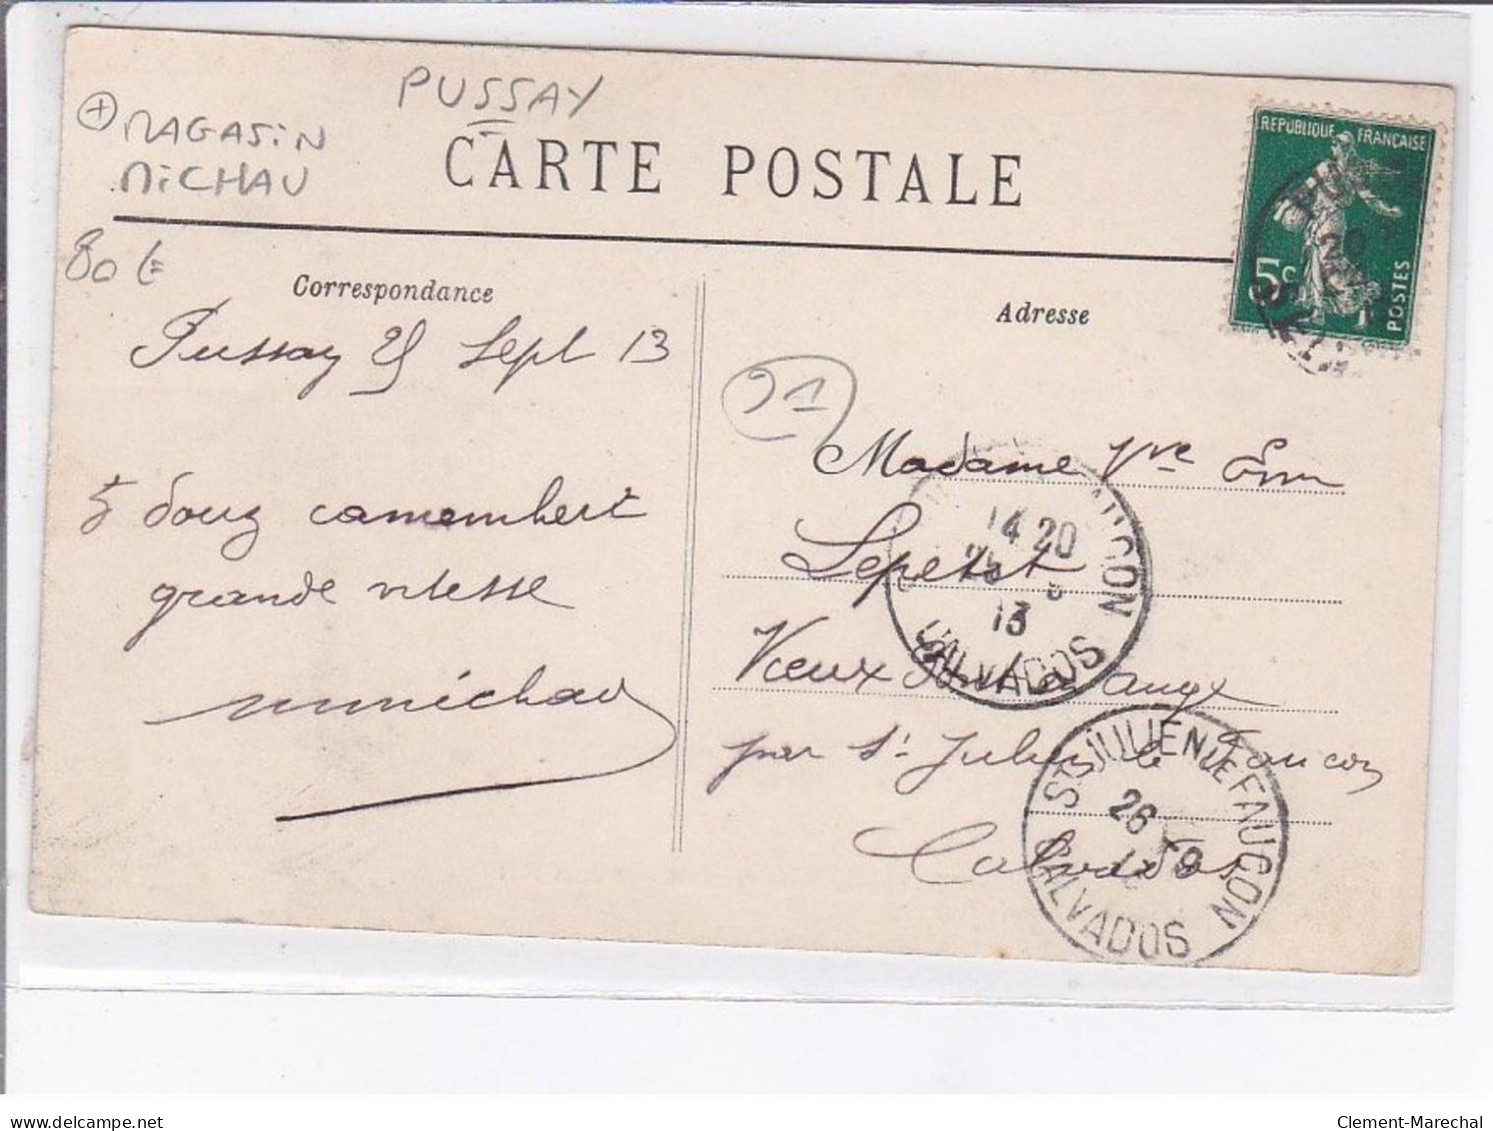 PUSSAY
+ MAGASIN
MICHAU
CARTE POSTALE
80 €
REPUBLIQUE FRANÇAISE
5c
POSTES
Correspondance
Adresse
Pussay 25 Sept 13
91
5 douz camembert
grande vitesse
Michau
Madame Vve Em
Lepetit
Vieux Pont en Auge
par St Julien le Faucon
Calvados
AUCON
14 20
13
CALVADOS
ST JULIEN LE FAUCON
26 - 9
CALVADOS
delcampe.net
Clement-Marechal